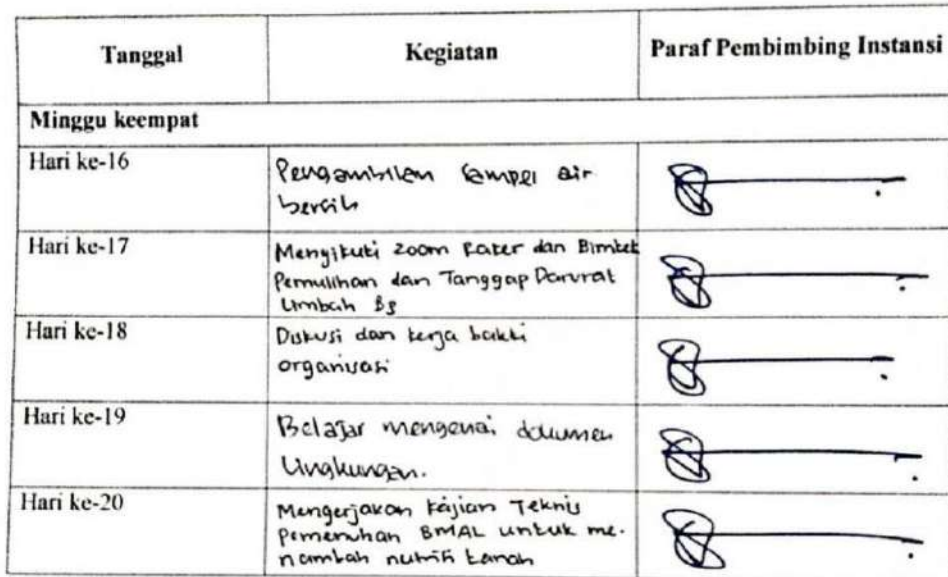 Tanggal Kegiatan Paraf Pembimbing Instansi
Minggu keempat
Hari ke-16
Pengambilan sampel air
bersih
Hari ke-17
Mengikuti zoom Raker dan Bimtek
Pemulihan dan Tanggap Darurat
Limbah B3
Hari ke-18
Diskusi dan kerja bakti
organisasi
Hari ke-19
Belajar mengenai dokumen
Lingkungan.
Hari ke-20
Mengerjakan Kajian Teknis
pemenuhan BMAL untuk me-
nambah nutrisi tanah